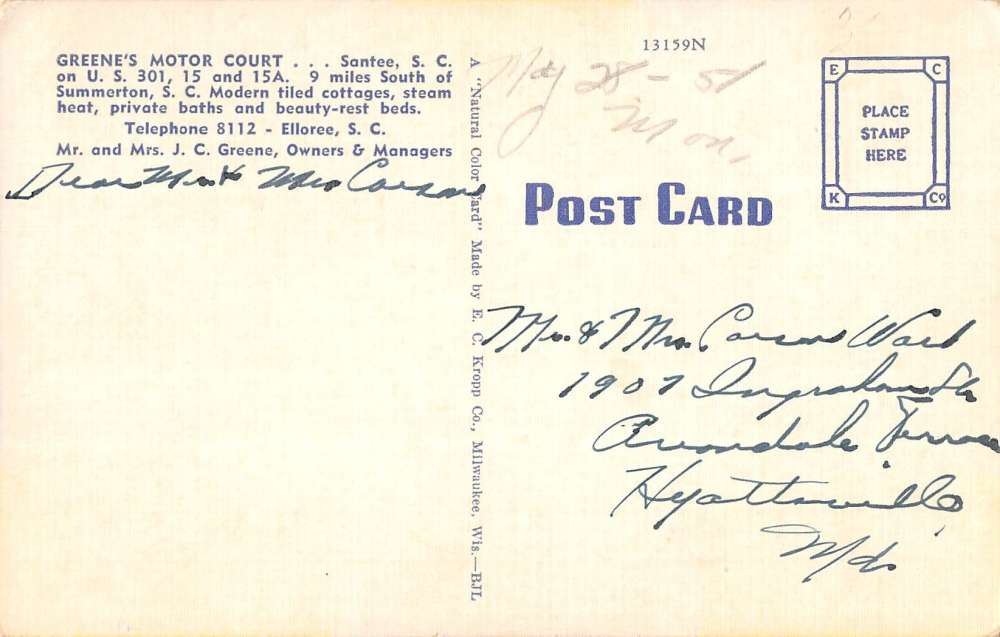 GREENE'S MOTOR COURT . . . Santee, S. C.
on U. S. 301, 15 and 15A. 9 miles South of
Summerton, S. C. Modern tiled cottages, steam
heat, private baths and beauty-rest beds.
Telephone 8112 - Elloree, S. C.
Mr. and Mrs. J. C. Greene, Owners & Managers
Dear Mr. & Mrs Carson
A "Natural Color Card" Made by E. C. Kropp Co., Milwaukee, Wis.—BJL
13159N
May 28 - 51
Mon.
E C
PLACE
STAMP
HERE
K Co
POST CARD
Mr. & Mrs. Carson Ward
1907 Ingraham St
Avondale Terrace
Hyattsville
Md.